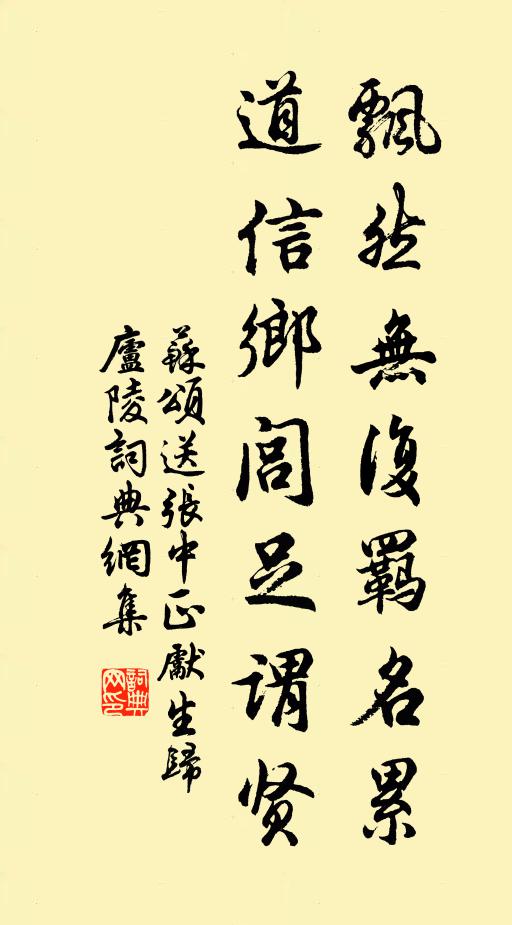 飄然無復羈名累
道信鄉閭足謂贤
蘇頌送張中正獻生歸
廬陵詞典網集
詞典網印